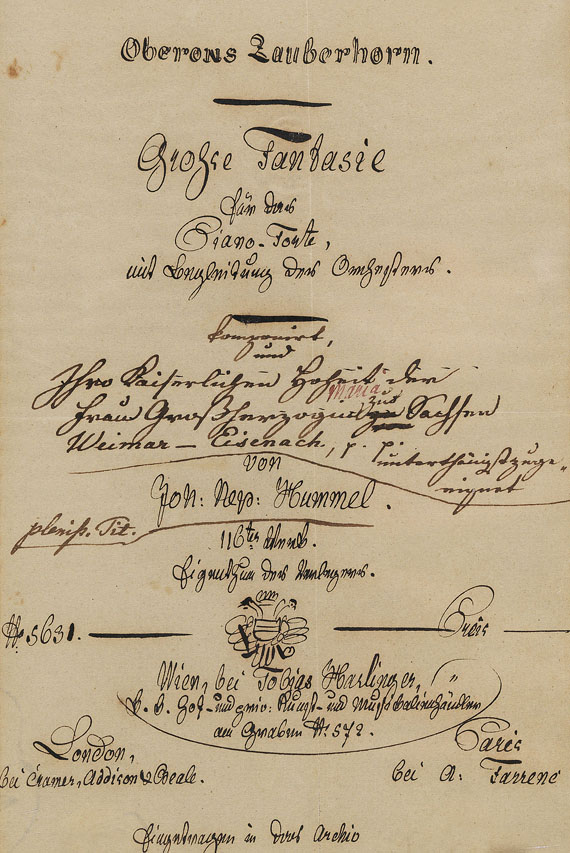 Oberons Zauberhorn.
Große Fantasie
für das
Piano-Forte,
mit Begleitung des Orchesters.
komponirt,
und
Ihro Kaiserlichen Hoheit der
Maria
Frau Großherzogin zu Sachsen
Weimar - Eisenach, p. p.
unterthänigst zuge-
eignet
von
Joh: Nep: Hummel.
pleniss. Tit.
116tes Werk.
Eigenthum des Verlegers.
No. 5631. Preis
Wien, bei Tobias Haslinger,
k. k. Hof- und priv: Kunst- und Musikalienhändler
am Graben No. 572.
London,
bei Cramer, Addison & Beale.
Paris
bei A: Farrenc
Eingetragen in das Archiv